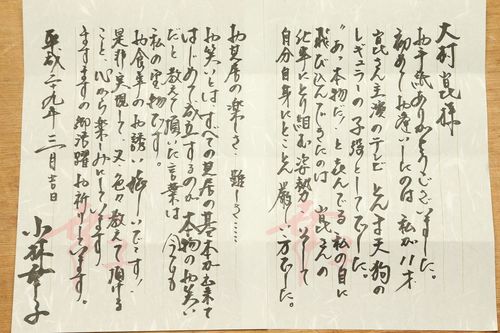 大村崑様
お手紙ありがとうございました。
初めてお逢いしたのは 私が11才
崑さん主演のテレビ とんま天狗の
レギュラーの子役としてでした。
"あっ本物だ!"と喜んでる私の目に
飛びこんできたのは 崑さんの
仕事にとり組む姿勢 そして
自分自身にとことん厳しい方でした。
お芝居の楽しさ… 難しさ…
お笑いとは、すべての芝居の基本が出来て
はじめて成立するのが 本物のお笑い
だと教えて頂いた言葉は 今でも
私の宝物です。
お食事のお誘い いです!
是非実現して 又色々教えて頂ける
こと、心から楽しみにしています
ますますの御活躍お祈りしています。
平成二十九年 三月吉日
小林幸子